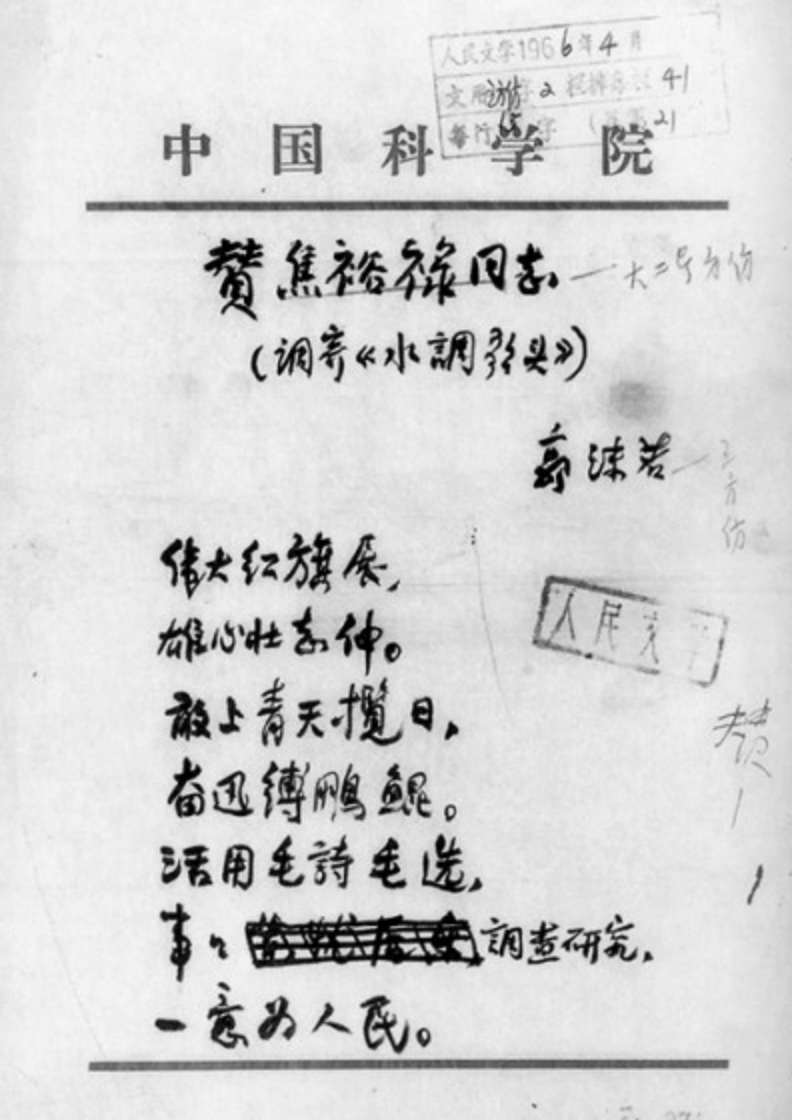 人民文学1966年4月
41
每行 字 21
中国科学院
赞焦裕禄同志 大二号方仿
(调寄《水調歌头》)
郭沫若 三方仿
偉大红旗展,
雄心壮志伸。
敢上青天攬日,
人民文学
奋迅縛鵬鲲。
赞
1
活用毛詩毛选,
事々調查研究,
一意为人民。